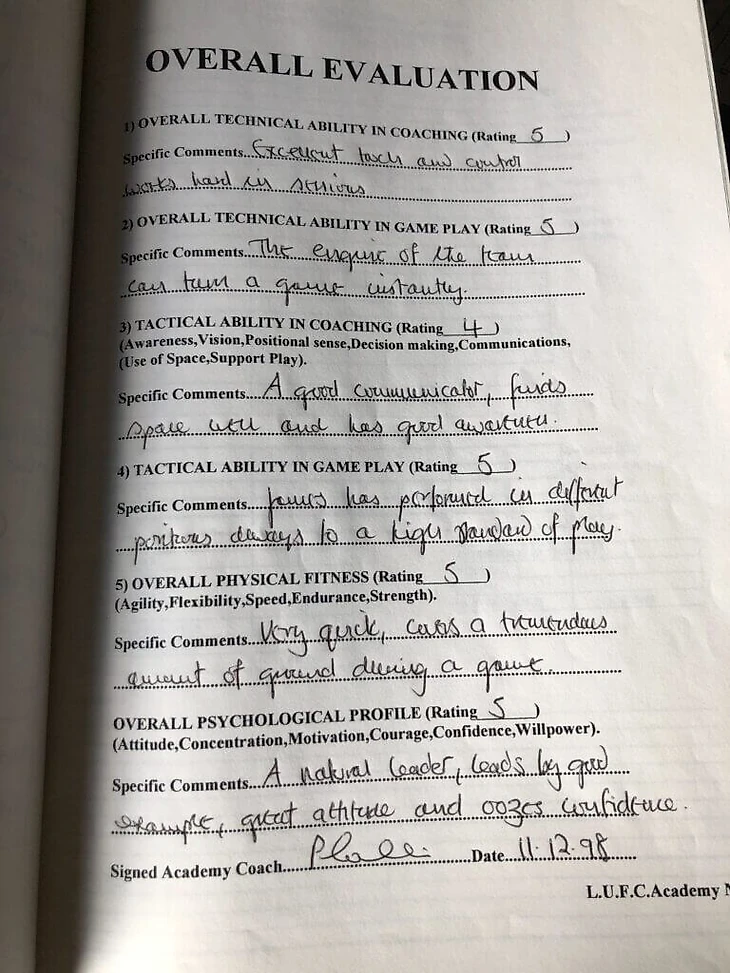 OVERALL EVALUATION
1) OVERALL TECHNICAL ABILITY IN COACHING (Rating 5 )
Specific Comments...Excellent touch and control
works hard in sessions
2) OVERALL TECHNICAL ABILITY IN GAME PLAY (Rating 5 )
Specific Comments...The engine of the team
can turn a game instantly.
3) TACTICAL ABILITY IN COACHING (Rating 4 )
(Awareness,Vision,Positional sense,Decision making,Communications,
(Use of Space,Support Play).
Specific Comments...A good communicator, finds
space well and has good awareness.
4) TACTICAL ABILITY IN GAME PLAY (Rating 5 )
Specific Comments...James has performed in different
positions always to a high standard of play.
5) OVERALL PHYSICAL FITNESS (Rating 5 )
(Agility,Flexibility,Speed,Endurance,Strength).
Specific Comments...Very quick, covers a tremendous
amount of ground during a game.
OVERALL PSYCHOLOGICAL PROFILE (Rating 5 )
(Attitude,Concentration,Motivation,Courage,Confidence,Willpower).
Specific Comments...A natural leader, leads by good
example, great attitude and oozes confidence.
Signed Academy Coach...... Date...11.12.98
L.U.F.C.Academy